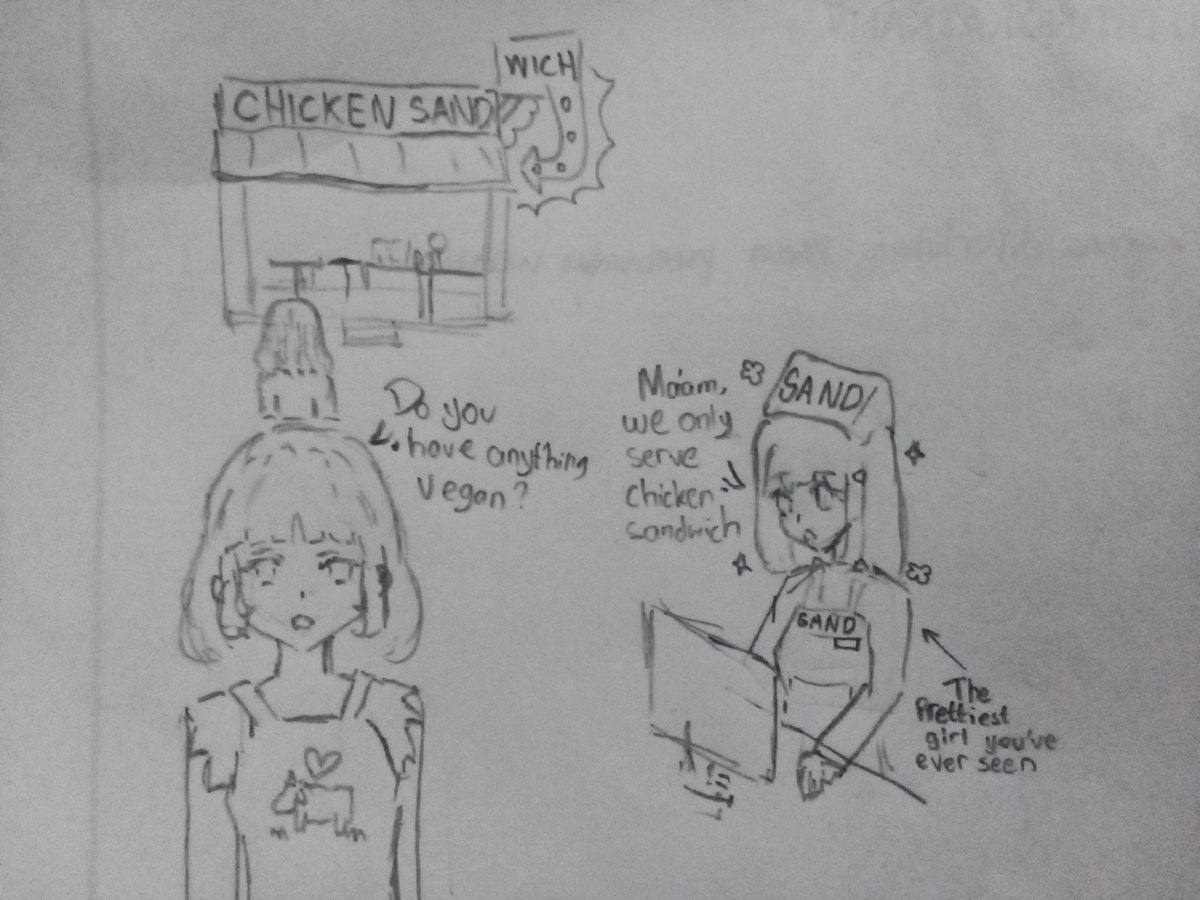 WICH
CHICKEN SAND
Do you
have anything
vegan?
Ma'am,
we only
serve
chicken
sandwich
SAND
SAND
The
Prettiest
girl you've
ever seen